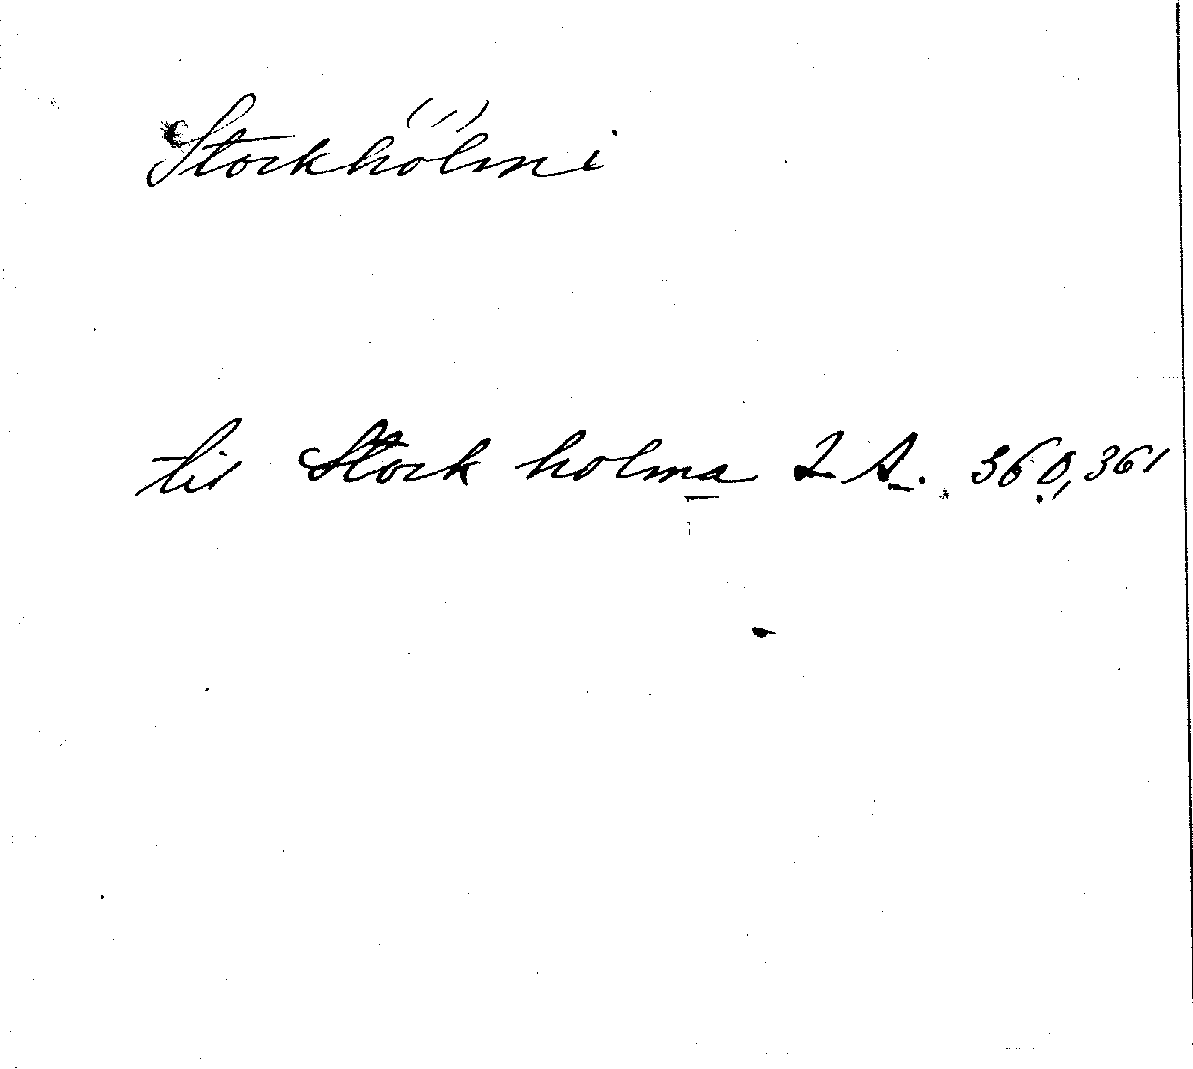 Stockhólmi
til Stock holma 2 A. 360, 361